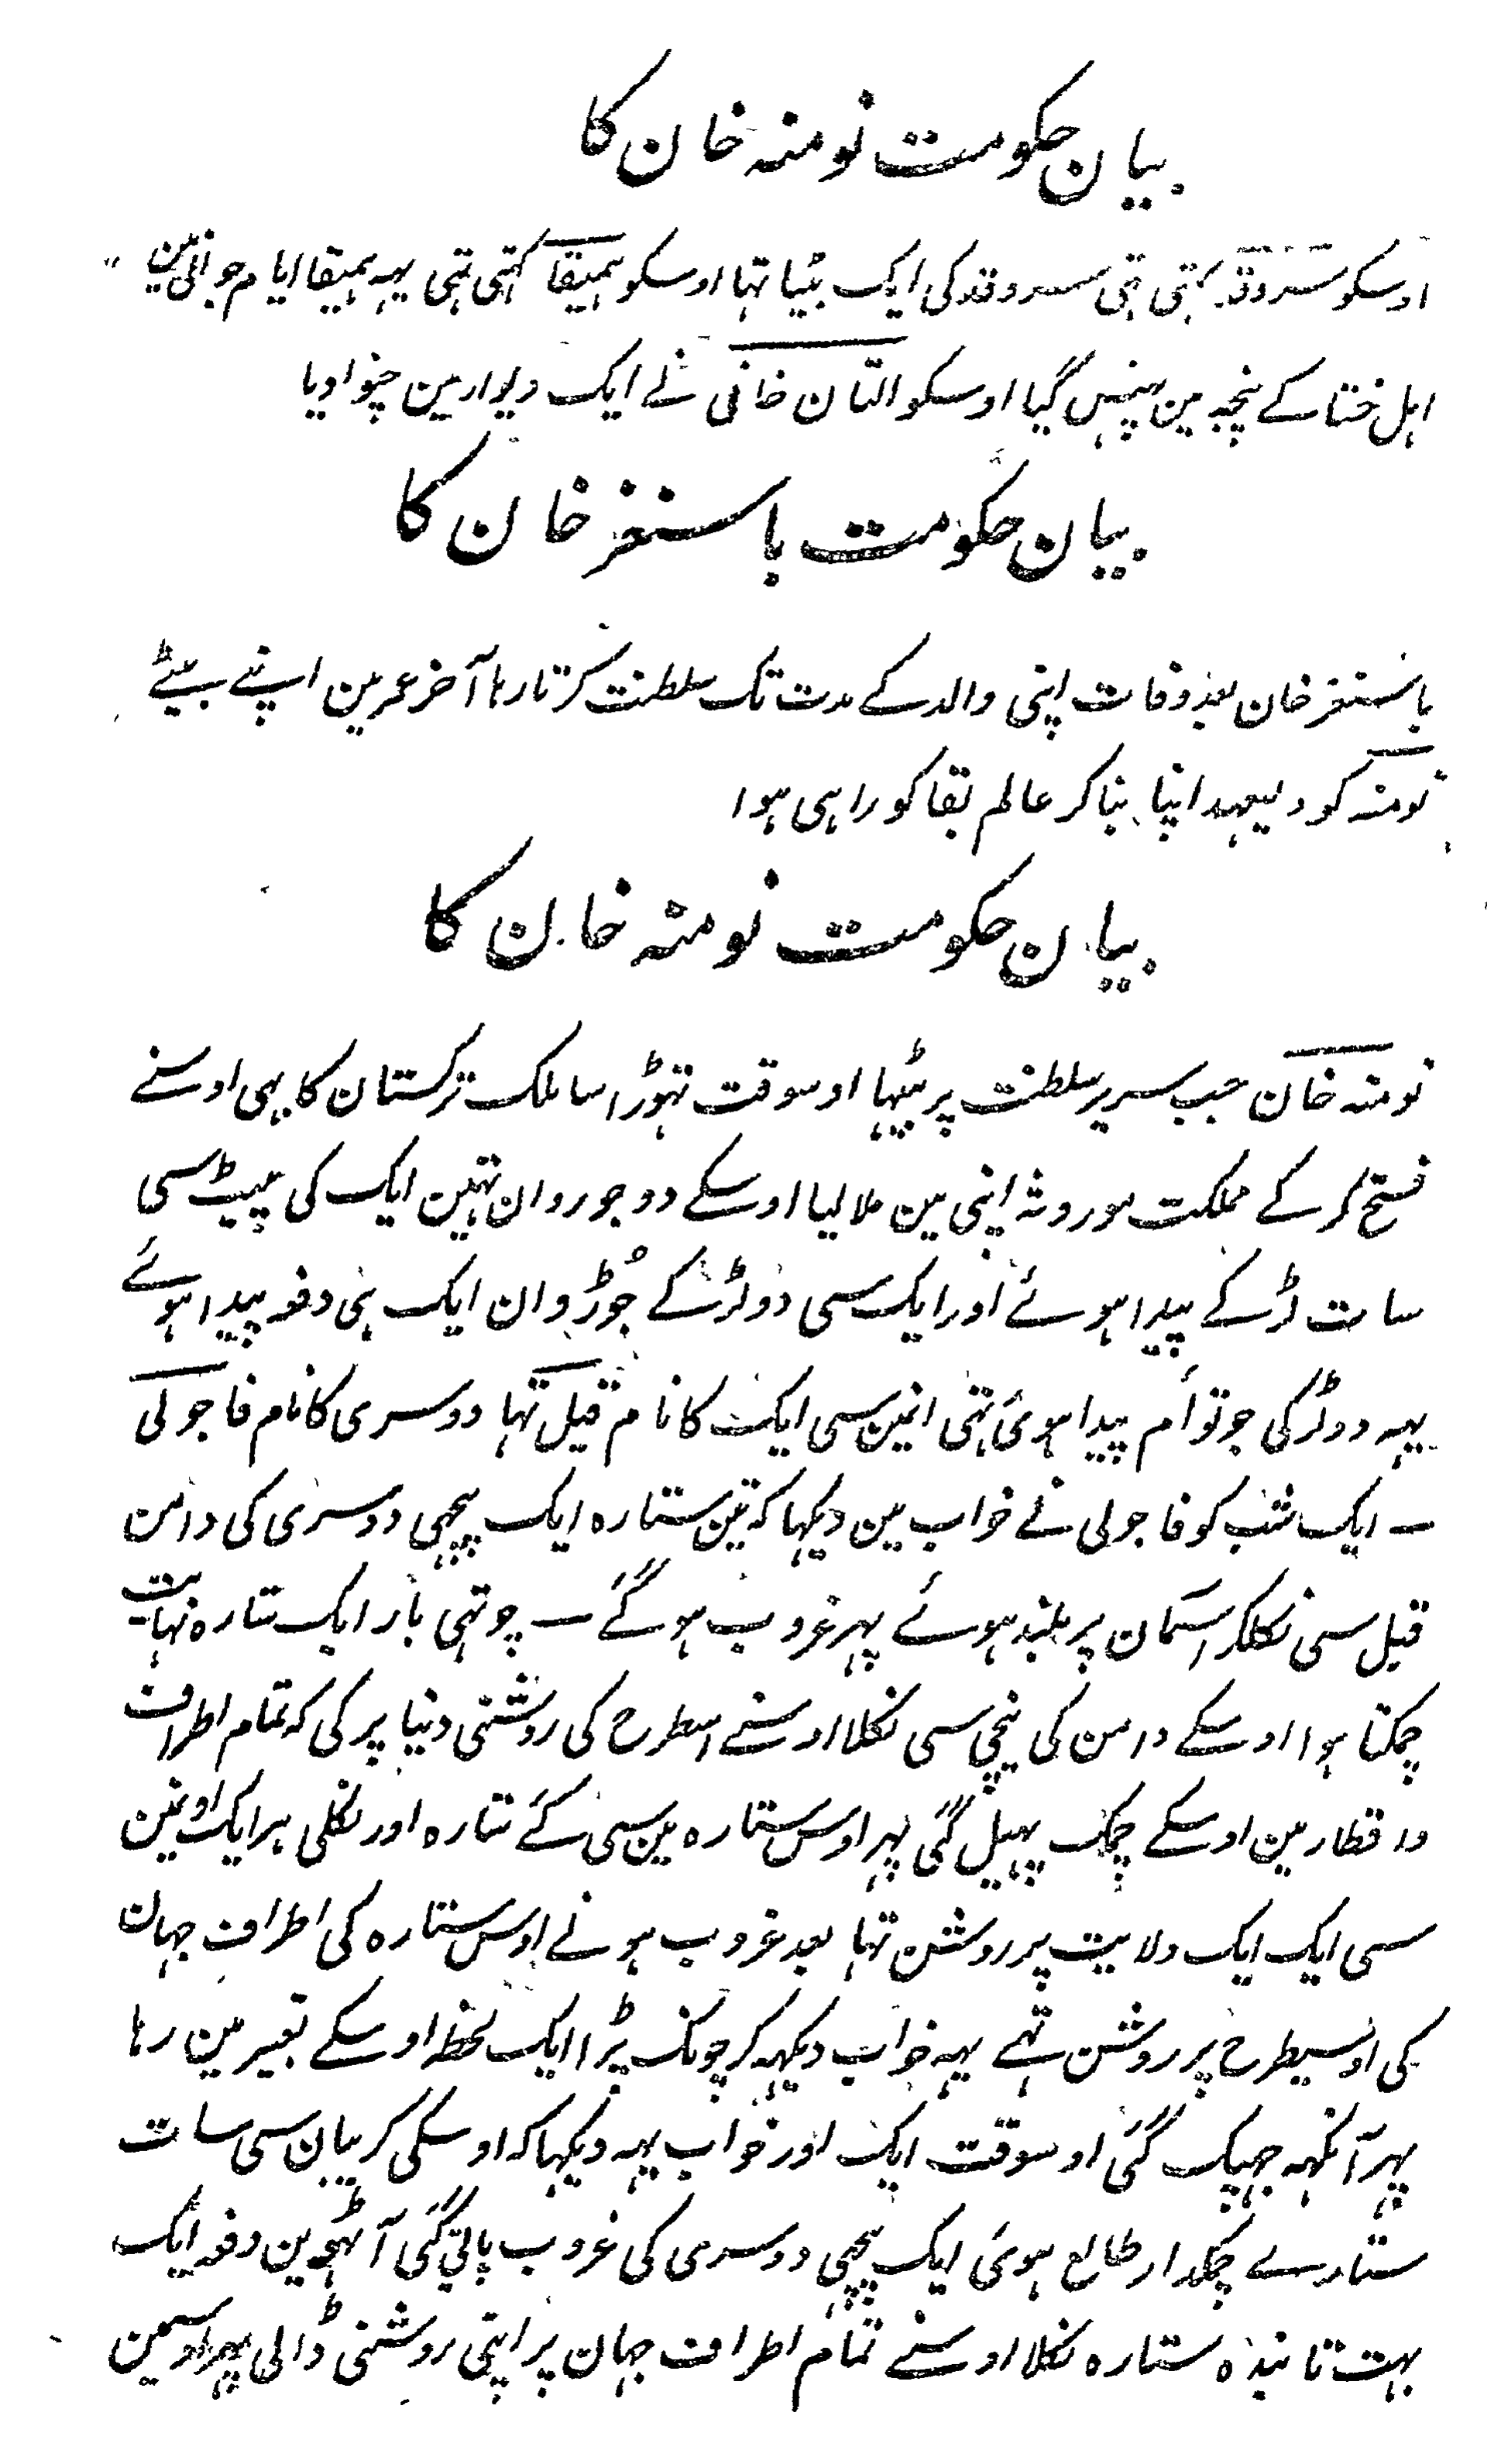 بیان حکومت نومنہ خان کا
اوسکو سروقد کہتی تہی سروقد کی ایک بیٹا تہا اوسکو ہمیقا کہتی تہی یہہ ہمیقا ایام جوانی مین
اہل ختا کے پنجہ مین پہنس گیا اوسکو التان خانی نے ایک دیوار مین چنوا دیا
بیان حکومت باسنغر خان کا
باسنغر خان بعد وفات اپنی والد کے مدت تک سلطنت کرتا رہا آخر عمر مین اپنے بیٹے
نومنہ کو ولیعہد اپنا بنا کر عالم بقا کو راہی ہوا
بیان حکومت نومنہ خان کا
نومنہ خان جب سریر سلطنت پر بیٹہا اوسوقت تہوڑا سا ملک ترکستان کا بہی اوسنے
فتح کر کے مملکت موروثہ اپنی مین ملا لیا اوسکے دو جوروان تہین ایک کی پیٹ سی
سات لڑکے پیدا ہوئے اور ایک سی دو لڑکے جُڑوان ایک ہی دفعہ پیدا ہوئے
یہہ دو لڑکی جو توأم پیدا ہوئی تہی انمین سی ایک کا نام قبل تہا دوسری کا نام قاجولی
ـ ایک شب کو قاجولی نے خواب مین دیکہا کہ تین ستارہ ایک پیچہی دوسری کی دامن
قبل سی نکلکر آسمان پر بلند ہوئے پہر غروب ہو گئے ـ چوتہی بار ایک ستارہ نہایت
چمکتا ہوا اوسکے دامن کی نیچی سی نکلا اوسنے اسطرح کی روشنی دنیا پر کی کہ تمام اطراف
و اقطار مین اوسکے چمک پہیل گئی پہر اوس ستارہ مین سی کئے ستارہ اور نکلی ہر ایک اونمین
سی ایک ایک ولایت پر روشن تہا بعد غروب ہونے اوس ستارہ کی اطراف جہان
کی اوسیطرح پر روشن تہے یہہ خواب دیکہہ کر چونک پڑا ایک لحظہ اوسکے تعبیر مین رہا
پہر آنکہہ جہپک گئی اوسوقت ایک اور خواب یہہ دیکہا کہ اوسکی کریبان سی سات
ستارے چمکدار طالع ہوئی ایک پیچہی دوسری کی غروب پاتی گئی آٹہوین دفعہ ایک
بہت تابندہ ستارہ نکلا اوسنے تمام اطراف جہان پر اپنی روشنی ڈالی پہر اوسمین